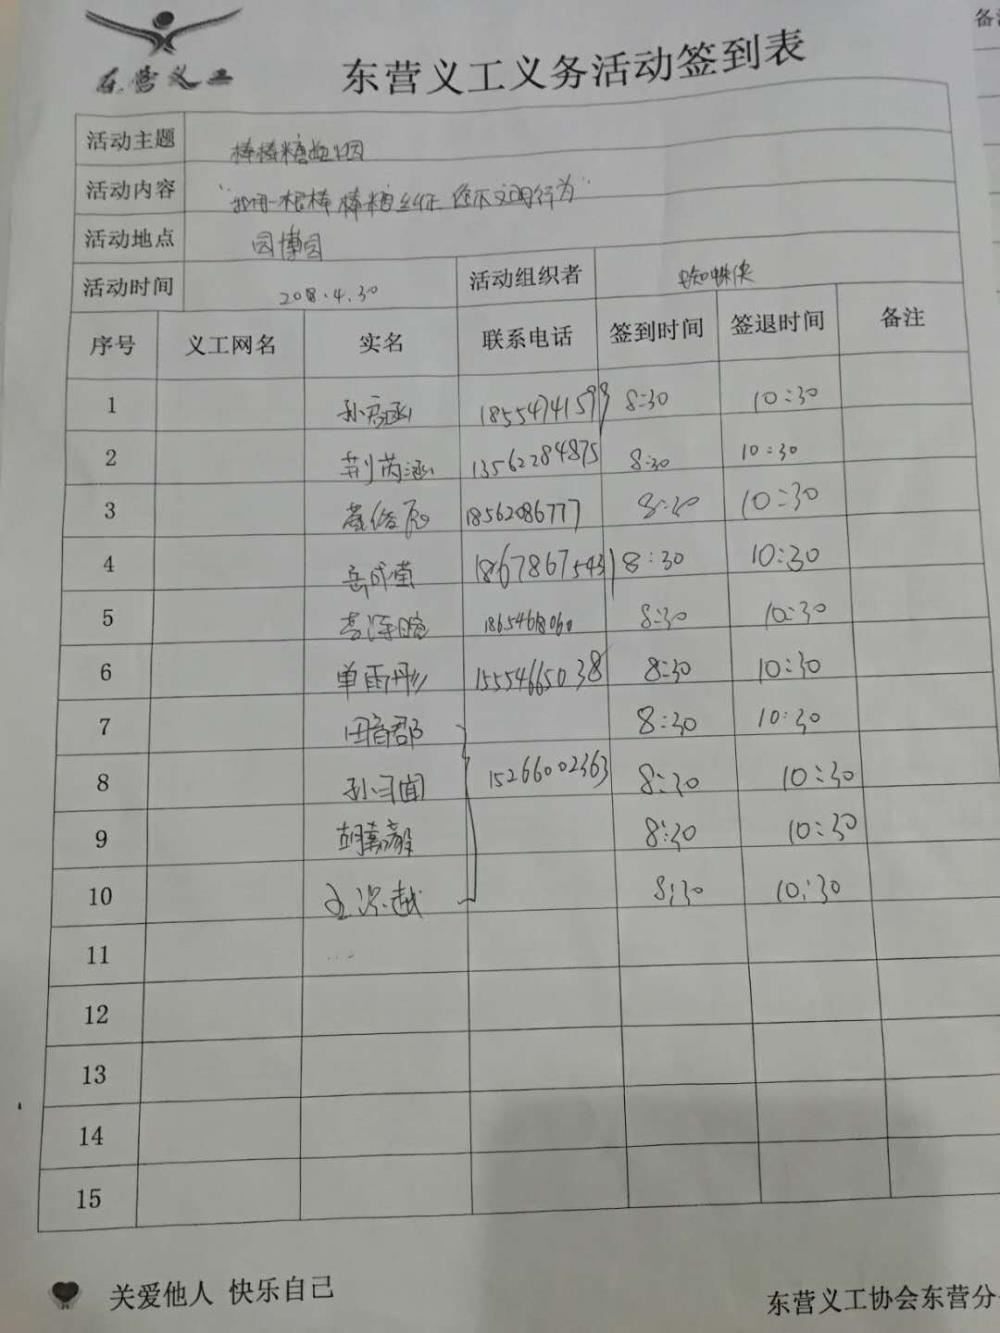 东营义工
备
东营义工义务活动签到表
活动主题 棒棒糖
活动内容 "我用一根棒棒糖纠正您不文明行为"
活动地点 园博园
活动时间 2018.4.30 活动组织者 蜘蛛侠
序号 义工网名 实名 联系电话 签到时间 签退时间 备注
1 孙 涵 18554741599 8:30 10:30
2 荆芮涵 13562284875 8:30 10:30
3 18562086777 8:30 10:30
4 岳 18678675431 8:30 10:30
5 8:30 10:30
6 单雨彤 15554665038 8:30 10:30
7 田 郡 8:30 10:30
8 孙 15266002363 8:30 10:30
9 胡嘉 8:30 10:30
10 越 8:30 10:30
11
12
13
14
15
关爱他人 快乐自己
东营义工协会东营分